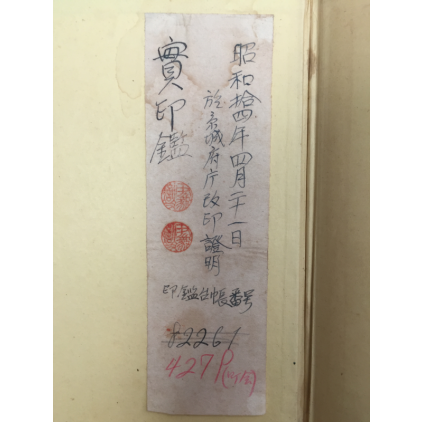 昭和拾四年四月二十一日
於京城府庁改印證明
實印鑑
印鑑台帳番号
82261
427P